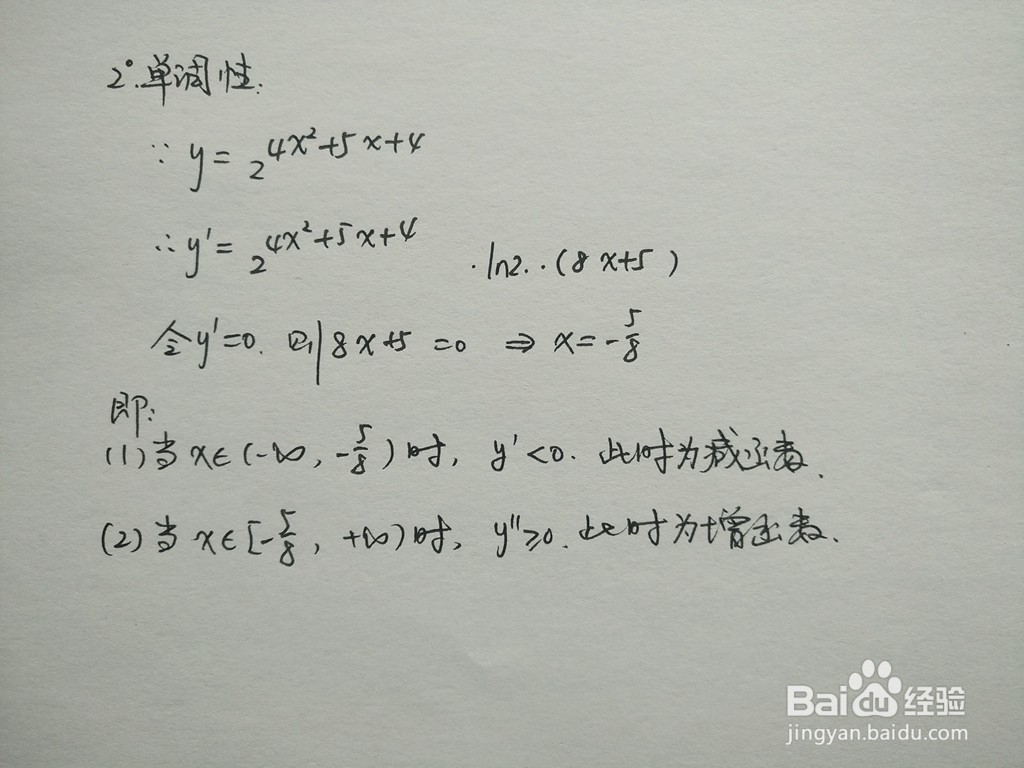 2°.单调性:
∵ y = 2^{4x²+5x+4}
∴ y' = 2^{4x²+5x+4} · ln2. · (8x+5)
令y'=0. 则 8x+5 =0 ⇒ x=-5/8
即:
(1)当 x∈(-∞, -5/8)时, y'<0. 此时为减函数.
(2)当 x∈[-5/8, +∞)时, y''≥0. 此时为增函数.
Baidu 经验
jingyan.baidu.com